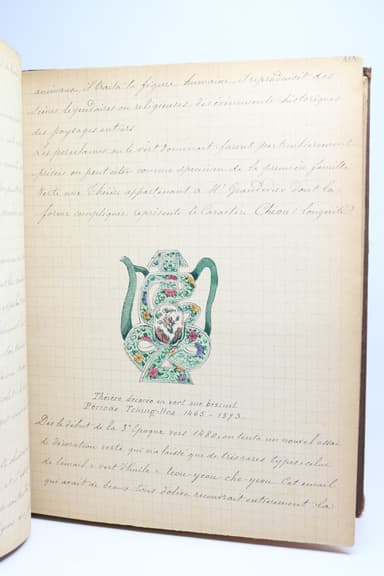 animaux. Il traita la figure humaine, il reproduisit des
scènes légendaires ou religieuses, des événements historiques
des paysages entiers.
Les porcelaines où le vert dominait furent particulièrement
prisées on peut citer comme spécimen de la première famille
Verte une Théière appartenant à Mr Grandidier dont la
forme compliquée représente le Caractère Cheou (longévité)
Théière décorée en vert sur biscuit.
Période Tching-Hoa 1465-1573.
Dès le début de la 3e Epoque vers 1480 on tenta un nouvel essai
de décoration verte qui n'a laissé que de très rares types celui
de l'émail « vert d'huile » tsou-yeou-che-yeou. Cet émail
qui avait de beaux tons d'olive recouvrait entièrement la